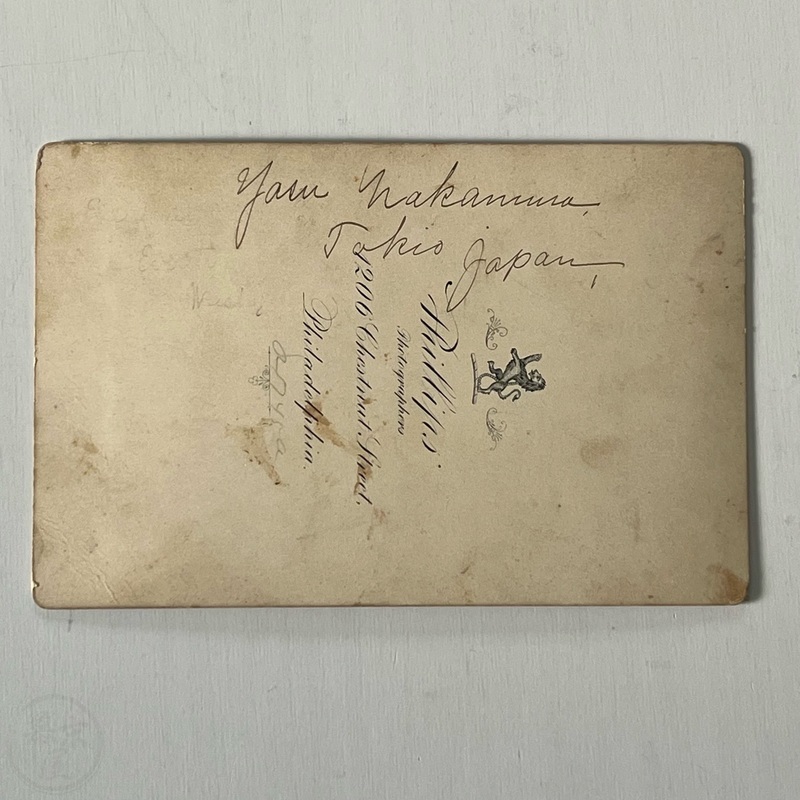 Yasu Nakamura,
Tokio Japan,
Phillips
Photographers
1206 Chestnut Street,
Philadelphia.